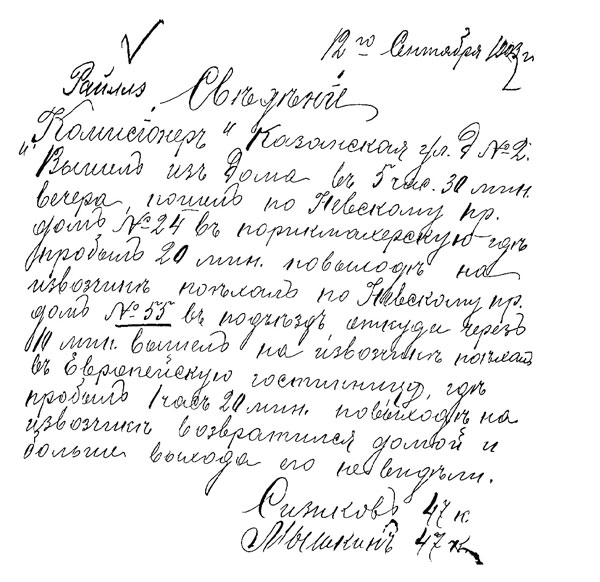 12го Сентября 1903 г.
Райллэ. Свѣдѣній
„Комисіонеръ“ Казанская ул. д №2.
Вышелъ изъ дома въ 5 час. 30 мин.
вечера, пошелъ по Невскому пр.
домъ №24 въ порикмахерскую гдѣ
пробылъ 20 мин. повыходѣ на
извозчикѣ поѣхалъ по Невскому пр.
домъ №55 въ подъѣздъ откуда черезъ
10 мин. вышелъ на извозчикѣ поѣхалъ
въ Европейскую гостинницу, гдѣ
пробылъ 1 часъ 20 мин. повыходѣ на
извозчикѣ возвратился домой и
больше выхода его невидѣли.
Сизиковъ 47 к
Мышкинъ 47 к